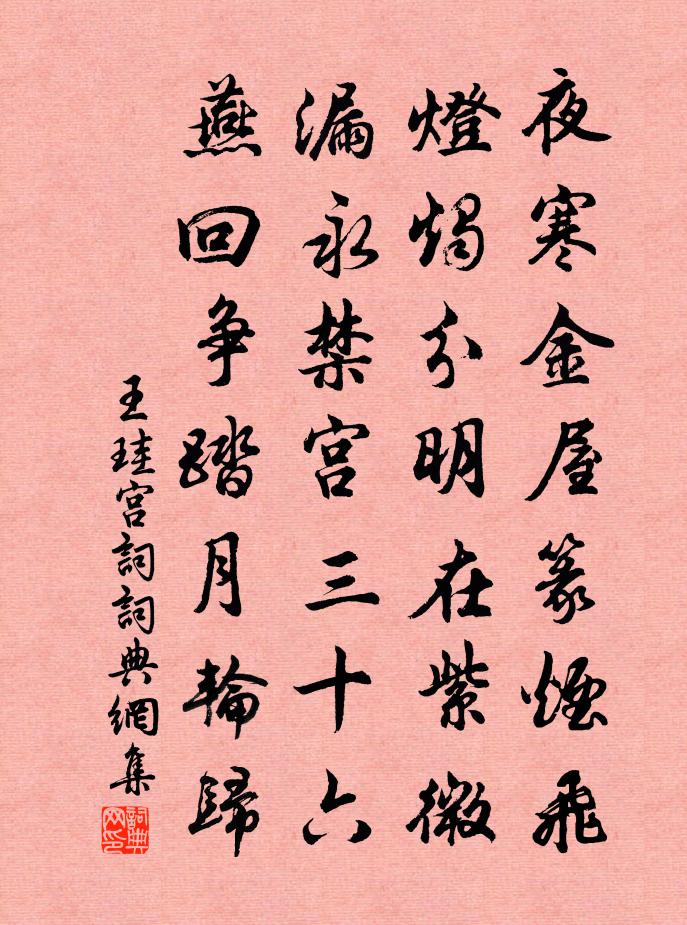 夜寒金屋篆煙飛
燈燭分明在紫微
漏永禁宮三十六
燕回爭踏月輪歸
王珪宮詞詞典網集
詞典网印